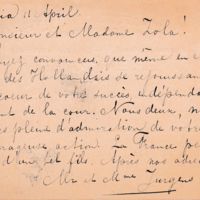 ia 11 April.
onsieur et Madame Zola!
oyez convaincus, que même en
des Hollandais se rejouissan
coeur de votre succès, indépenda
nt de la cour. Nous deux, n
es pleins d'admiration de votre
rageuse action! La France p
d'un tel fils. Après nos adie
Mr et Mme Jurgens